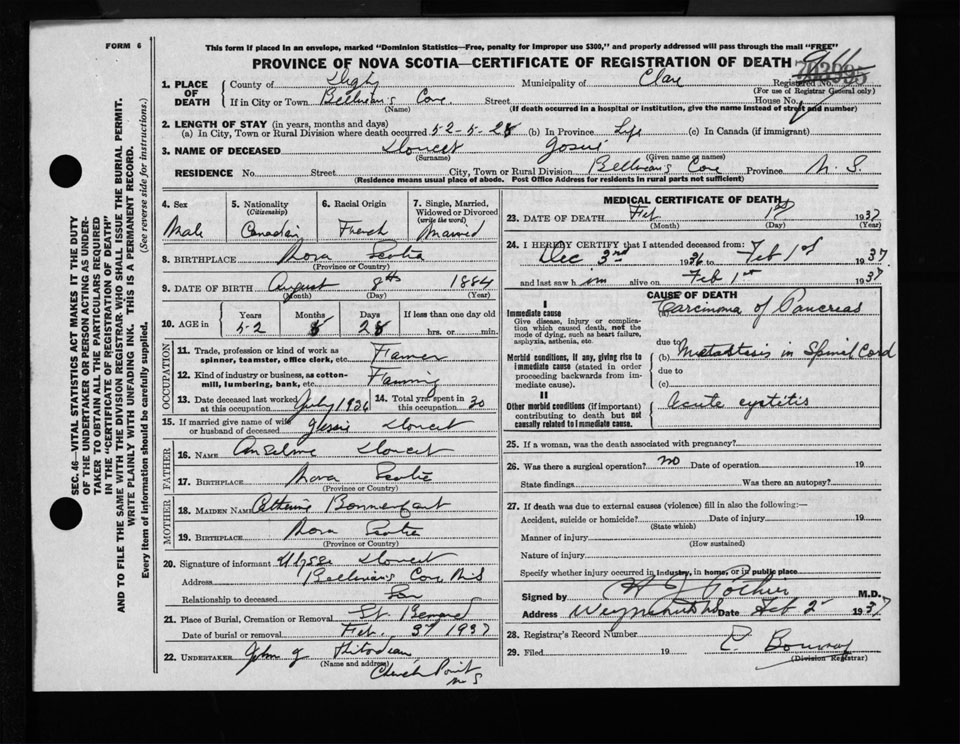 FORM 6
This form if placed in an envelope, marked "Dominion Statistics—Free, penalty for improper use $300," and properly addressed will pass through the mail "FREE"
PROVINCE OF NOVA SCOTIA—CERTIFICATE OF REGISTRATION OF DEATH
SEC. 46—VITAL STATISTICS ACT MAKES IT THE DUTY
OF THE UNDERTAKER OR PERSON ACTING AS UNDER-
TAKER TO OBTAIN ALL THE PARTICULARS REQUIRED
IN THE "CERTIFICATE OF REGISTRATION OF DEATH"
AND TO FILE THE SAME WITH THE DIVISION REGISTRAR WHO SHALL ISSUE THE BURIAL PERMIT.
WRITE PLAINLY WITH UNFADING INK. THIS IS A PERMANENT RECORD.
Every item of information should be carefully supplied. (See reverse side for instructions.)
1. PLACE OF DEATH County of Digby Municipality of Clare Registered No.
(For use of Registrar General only)
If in City or Town Belliveau's Cove Street House No.
(Name) (If death occurred in a hospital or institution, give the name instead of street and number)
2. LENGTH OF STAY (in years, months and days)
(a) In City, Town or Rural Division where death occurred 52-5-28 (b) In Province Life (c) In Canada (if immigrant)
3. NAME OF DECEASED Doucet Josué
(Surname) (Given name or names)
RESIDENCE No. Street City, Town or Rural Division Belliveau's Cove Province N. S.
(Residence means usual place of abode. Post Office Address for residents in rural parts not sufficient)
4. Sex Male
5. Nationality (Citizenship) Canadian
6. Racial Origin French
7. Single, Married, Widowed or Divorced (write the word) Married
8. BIRTHPLACE Nova Scotia
(Province or Country)
9. DATE OF BIRTH August 8th 1884
(Month) (Day) (Year)
10. AGE in Years Months Days If less than one day old
52 28 hrs. or min.
OCCUPATION
11. Trade, profession or kind of work as spinner, teamster, office clerk, etc. Farmer
12. Kind of industry or business, as cotton-mill, lumbering, bank, etc. Farming
13. Date deceased last worked at this occupation July 1936 14. Total yrs. spent in this occupation 30
15. If married give name of wife or husband of deceased Doucet
FATHER
16. NAME Anselme Doucet
17. BIRTHPLACE Nova Scotia
(Province or Country)
MOTHER
18. MAIDEN NAME Catherine Bonnenfant
19. BIRTHPLACE Nova Scotia
(Province or Country)
20. Signature of informant Ulysse Doucet
Address Belliveau's Cove N.S
Relationship to deceased Son
21. Place of Burial, Cremation or Removal St. Bernard
Date of burial or removal Feb. 3rd 1937
22. UNDERTAKER John J Thibodeau
(Name and address) Church Point
N S
MEDICAL CERTIFICATE OF DEATH
23. DATE OF DEATH Feb 1st 1937
(Month) (Day) (Year)
24. I HEREBY CERTIFY that I attended deceased from:
Dec 3rd 1936 to Feb 1st 1937
and last saw him alive on Feb 1st 1937
CAUSE OF DEATH
I
Immediate cause
Give disease, injury or complication which caused death, not the mode of dying, such as heart failure, asphyxia, asthenia, etc.
Carcinoma of Pancreas
due to
Morbid conditions, if any, giving rise to immediate cause (stated in order proceeding backwards from immediate cause).
(b) Metastasis in Spinal Cord
due to
(c)
II
Other morbid conditions (if important) contributing to death but not causally related to immediate cause.
Acute cystitis
25. If a woman, was the death associated with pregnancy?
26. Was there a surgical operation? no Date of operation 19
State findings Was there an autopsy?
27. If death was due to external causes (violence) fill in also the following:—
Accident, suicide or homicide? Date of injury 19
(State which)
Manner of injury
(How sustained)
Nature of injury
Specify whether injury occurred in industry, in home, or in public place
Signed by Pothier M.D.
Address Weymouth NS Date Feb 2 1937
28. Registrar's Record Number
29. Filed 19
(Division Registrar)